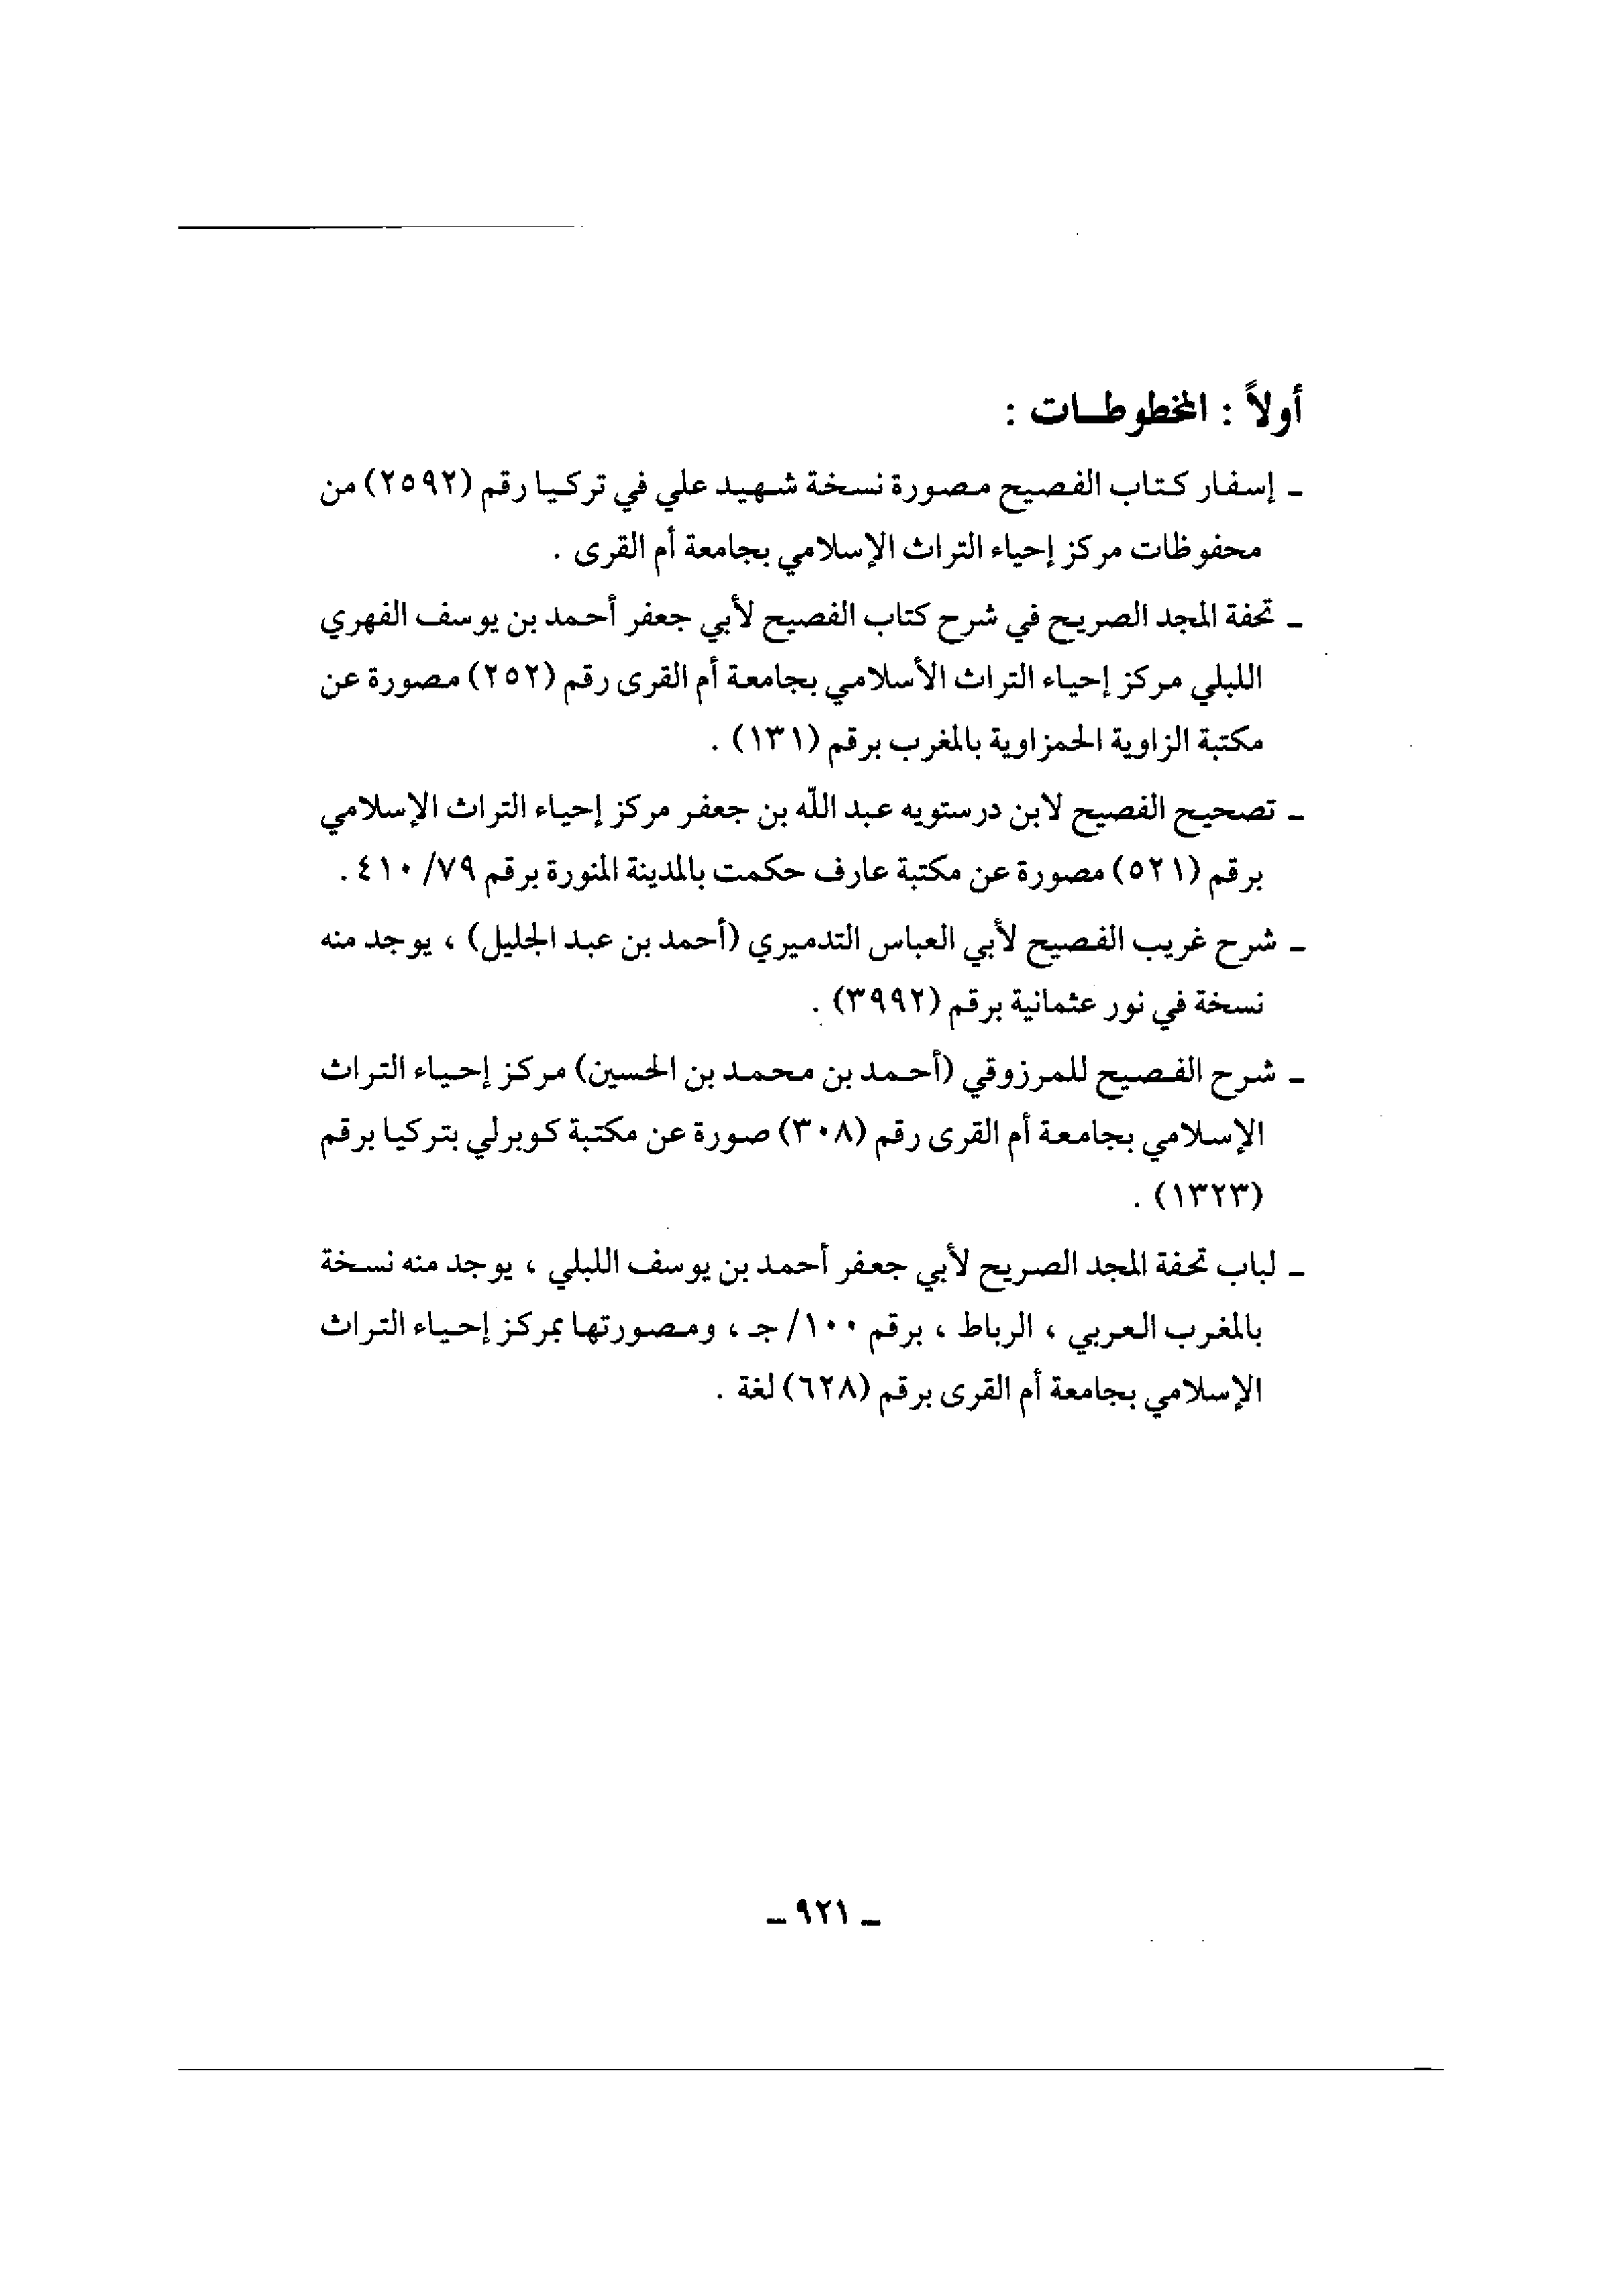 أولاً : المخطوطات :
ـ إسفار كتاب الفصيح مصورة نسخة شهيد علي في تركيا رقم (٢٥٩٢) من
محفوظات مركز إحياء التراث الإسلامي بجامعة أم القرى .
ـ تحفة المجد الصريح في شرح كتاب الفصيح لأبي جعفر أحمد بن يوسف الفهري
اللبلي مركز إحياء التراث الأسلامي بجامعة أم القرى رقم (٢٥٢) مصورة عن
مكتبة الزاوية الحمزاوية بالمغرب برقم (١٣١) .
ـ تصحيح الفصيح لابن درستويه عبد الله بن جعفر مركز إحياء التراث الإسلامي
برقم (٥٢١) مصورة عن مكتبة عارف حكمت بالمدينة المنورة برقم ٧٩/ ٤١٠ .
ـ شرح غريب الفصيح لأبي العباس التدميري (أحمد بن عبد الجليل) ، يوجد منه
نسخة في نور عثمانية برقم (٣٩٩٢) .
ـ شرح الفصيح للمرزوقي (أحمد بن محمد بن الحسين) مركز إحياء التراث
الإسلامي بجامعة أم القرى رقم (٣٠٨) صورة عن مكتبة كوبرلي بتركيا برقم
(١٣٢٣) .
ـ لباب تحفة المجد الصريح لأبي جعفر أحمد بن يوسف اللبلي ، يوجد منه نسخة
بالمغرب العربي ، الرباط ، برقم ١٠٠/ جـ ، ومصورتها بمركز إحياء التراث
الإسلامي بجامعة أم القرى برقم (٦٢٨) لغة .
ـ ٩٢١ ـ